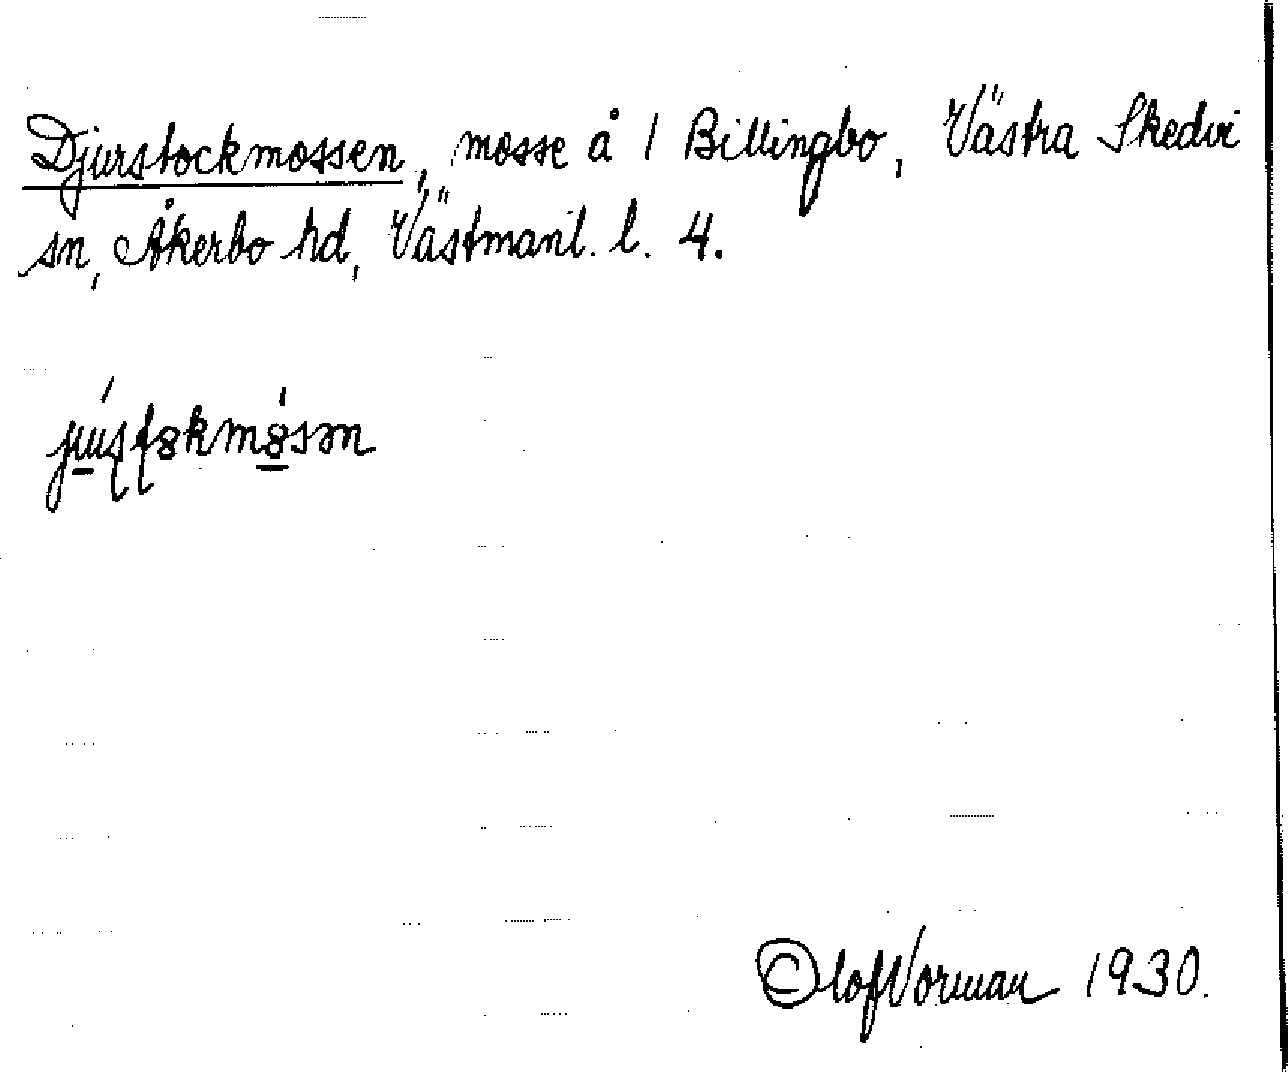 Djurstockmossen, mosse å 1 Billingbo, Västra Skedvi
sn, Åkerbo hd, Västmanl. l. 4.
Olof Norman 1930.